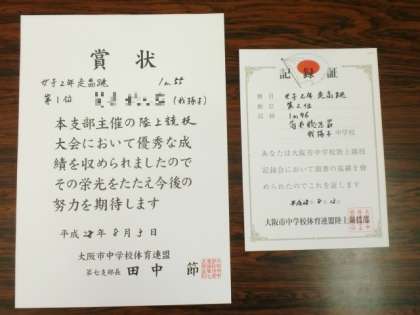 賞状
女子2年走高跳 1m55
第1位 (我孫子)
本支部主催の陸上競技
大会において優秀な成
績を収められましたので
その栄光をたたえ今後の
努力を期待します
平成28年8月5日
大阪市中学校体育連盟
第七支部長 田中 節
記録証
種目 女子2年走高跳
順位 第2位
記録 1m46
我孫子 中学校
あなたは大阪市中学校陸上競技
記録会において頭書の成績を修
められたのでこれを証します
大阪市中学校体育連盟陸上競技部